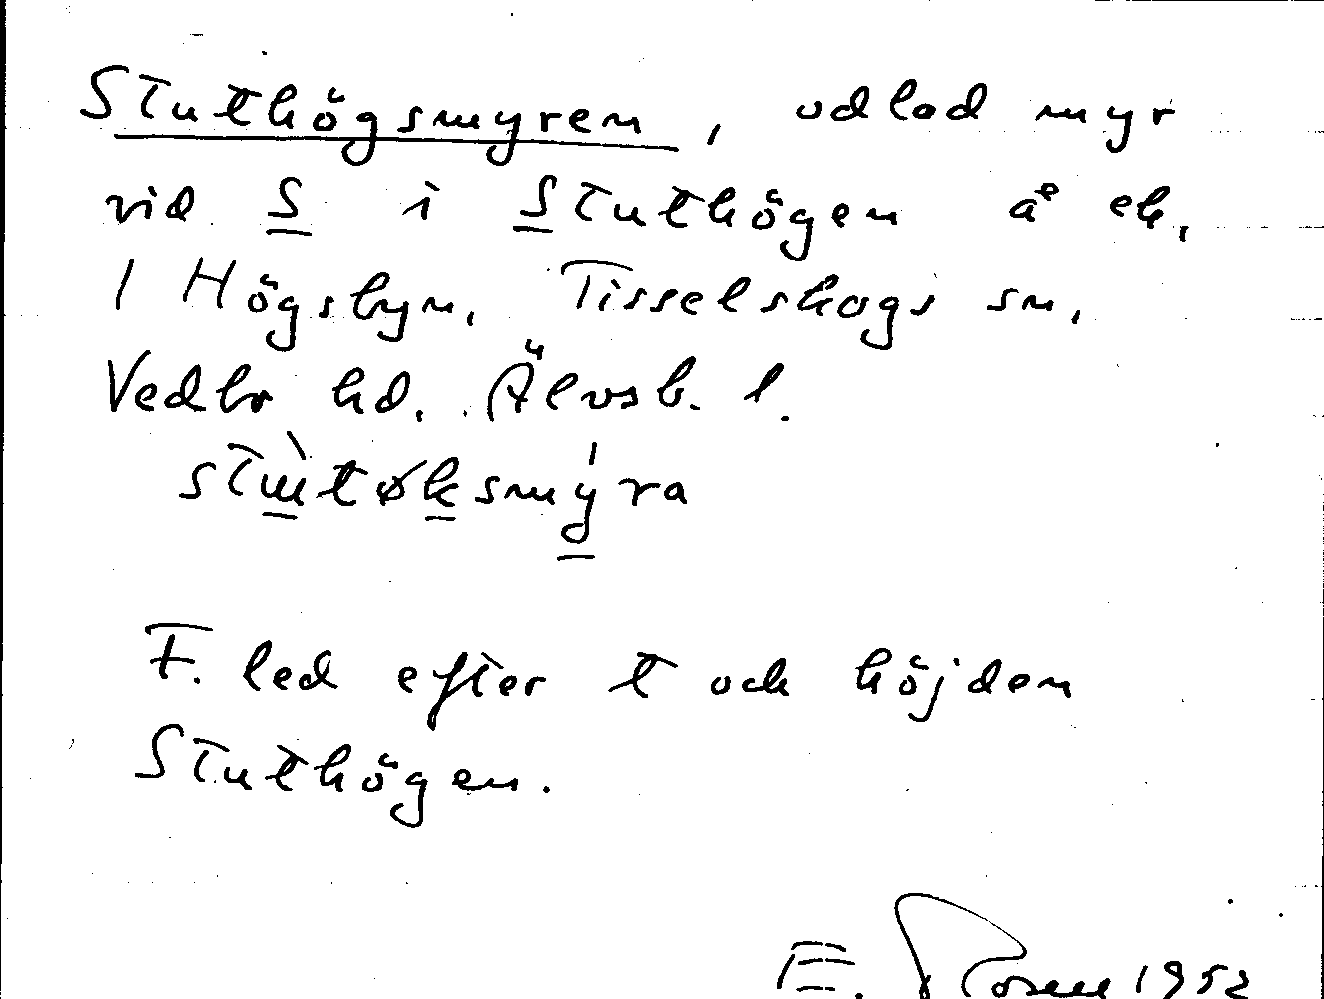 Stuthögsmyren, odlad myr
vid S i Stuthögen å ek.
1 Högsbyn, Tisselskogs sn,
Vedbo hd. Älvsb. l.
F. led efter t och höjden
Stuthögen.
E. Rosell 1952